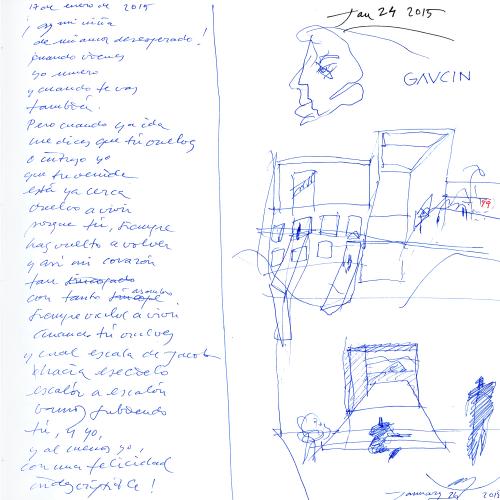 17 de enero de 2015
¡ ay mi niña
de mi amor desesperado!
quando vienes
yo muero
y cuando te vas
también.
Pero cuando ya ida
me dices que tú vuelves
o intuyo yo
que tu venida
está ya cerca
vuelvo a vivir
porque tú, siempre
has vuelto a volver
y así mi corazón
tan
con tanto asombro
siempre vuelve a vivir
cuando tú vuelves
y cual escala de Jacob
hacia ese cielo
escalón a escalón
vamos subiendo
tú, y yo,
y al menos yo,
con una felicidad
indescriptible!
Jan 24 2015
GAUCIN
79
January 24 2015